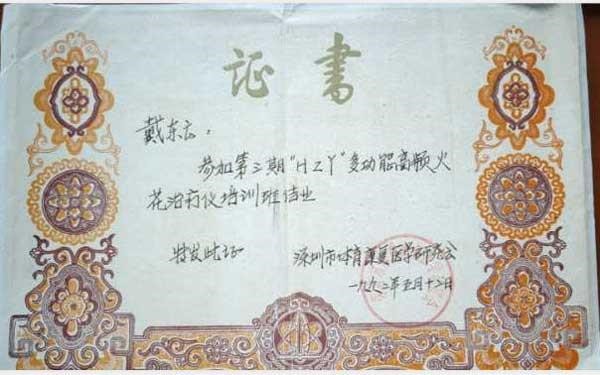 证書
戴东云:
参加第三期"HZY"多功能高频火
花治疗仪培训班结业
特发此证
深圳市体育康复医学研究会
一九九二年五月十二日